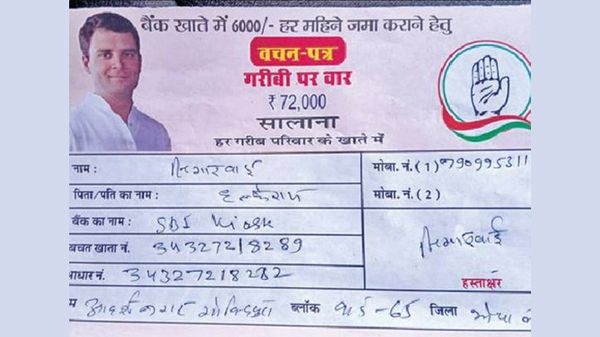 बैंक खाते में 6000/- हर महिने जमा कराने हेतु
वचन-पत्र
गरीबी पर वार
₹ 72,000
सालाना
हर गरीब परिवार के खाते में
नाम :
मोबा. नं. (1) 9790995311
पिता/पति का नाम :
मोबा. नं. (2)
बैंक का नाम : SBI Kiosk
बचत खाता नं. 34327218289
आधार नं. : 34327218282
हस्ताक्षर
म आदर्श नगर गोविन्दपुरा ब्लॉक वार्ड-65 जिला